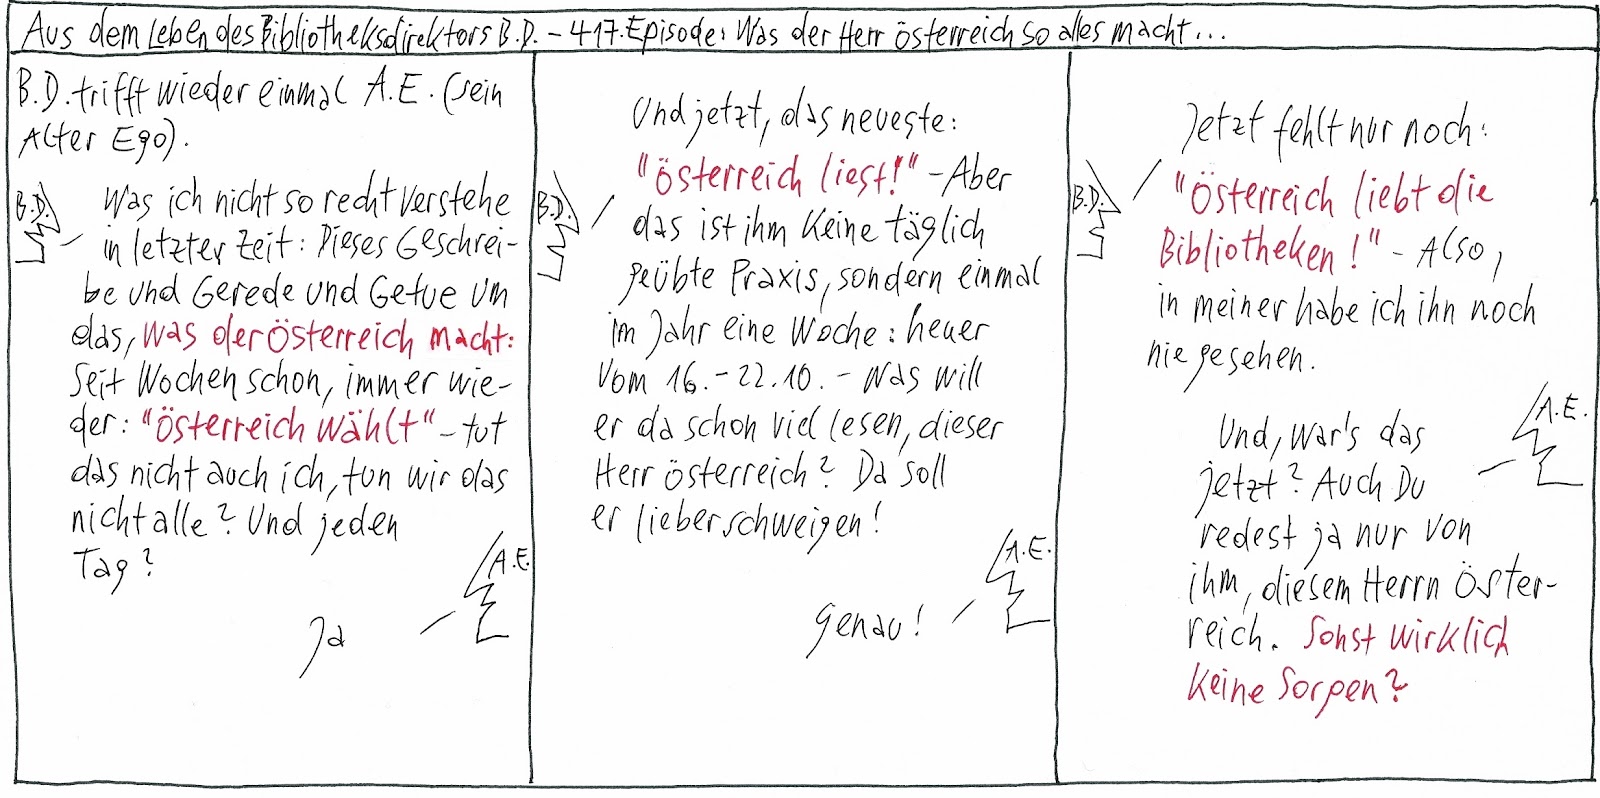 Aus dem Leben des Bibliotheksdirektors B.D. – 417. Episode: Was der Herr Österreich so alles macht...
B.D. trifft wieder einmal A.E. (sein
Alter Ego).
B.D.
Was ich nicht so recht verstehe
in letzter Zeit: Dieses Geschrei-
be und Gerede und Getue um
das, was der Österreich macht:
Seit Wochen schon, immer wie-
der: "Österreich wählt" – tut
das nicht auch ich, tun wir das
nicht alle? Und jeden
Tag?
A.E.
Ja
Und jetzt, das neueste:
"Österreich liest!" – Aber
B.D.
das ist ihm keine täglich
geübte Praxis, sondern einmal
im Jahr eine Woche: heuer
vom 16.–22.10. – Was will
er da schon viel lesen, dieser
Herr Österreich? Da soll
er lieber schweigen!
A.E.
Genau!
Jetzt fehlt nur noch:
B.D.
"Österreich liebt die
Bibliotheken!" – Also,
in meiner habe ich ihn noch
nie gesehen.
A.E.
Und, war's das
jetzt? Auch Du
redest ja nur von
ihm, diesem Herrn Öster-
reich. Sonst wirklich
keine Sorgen?